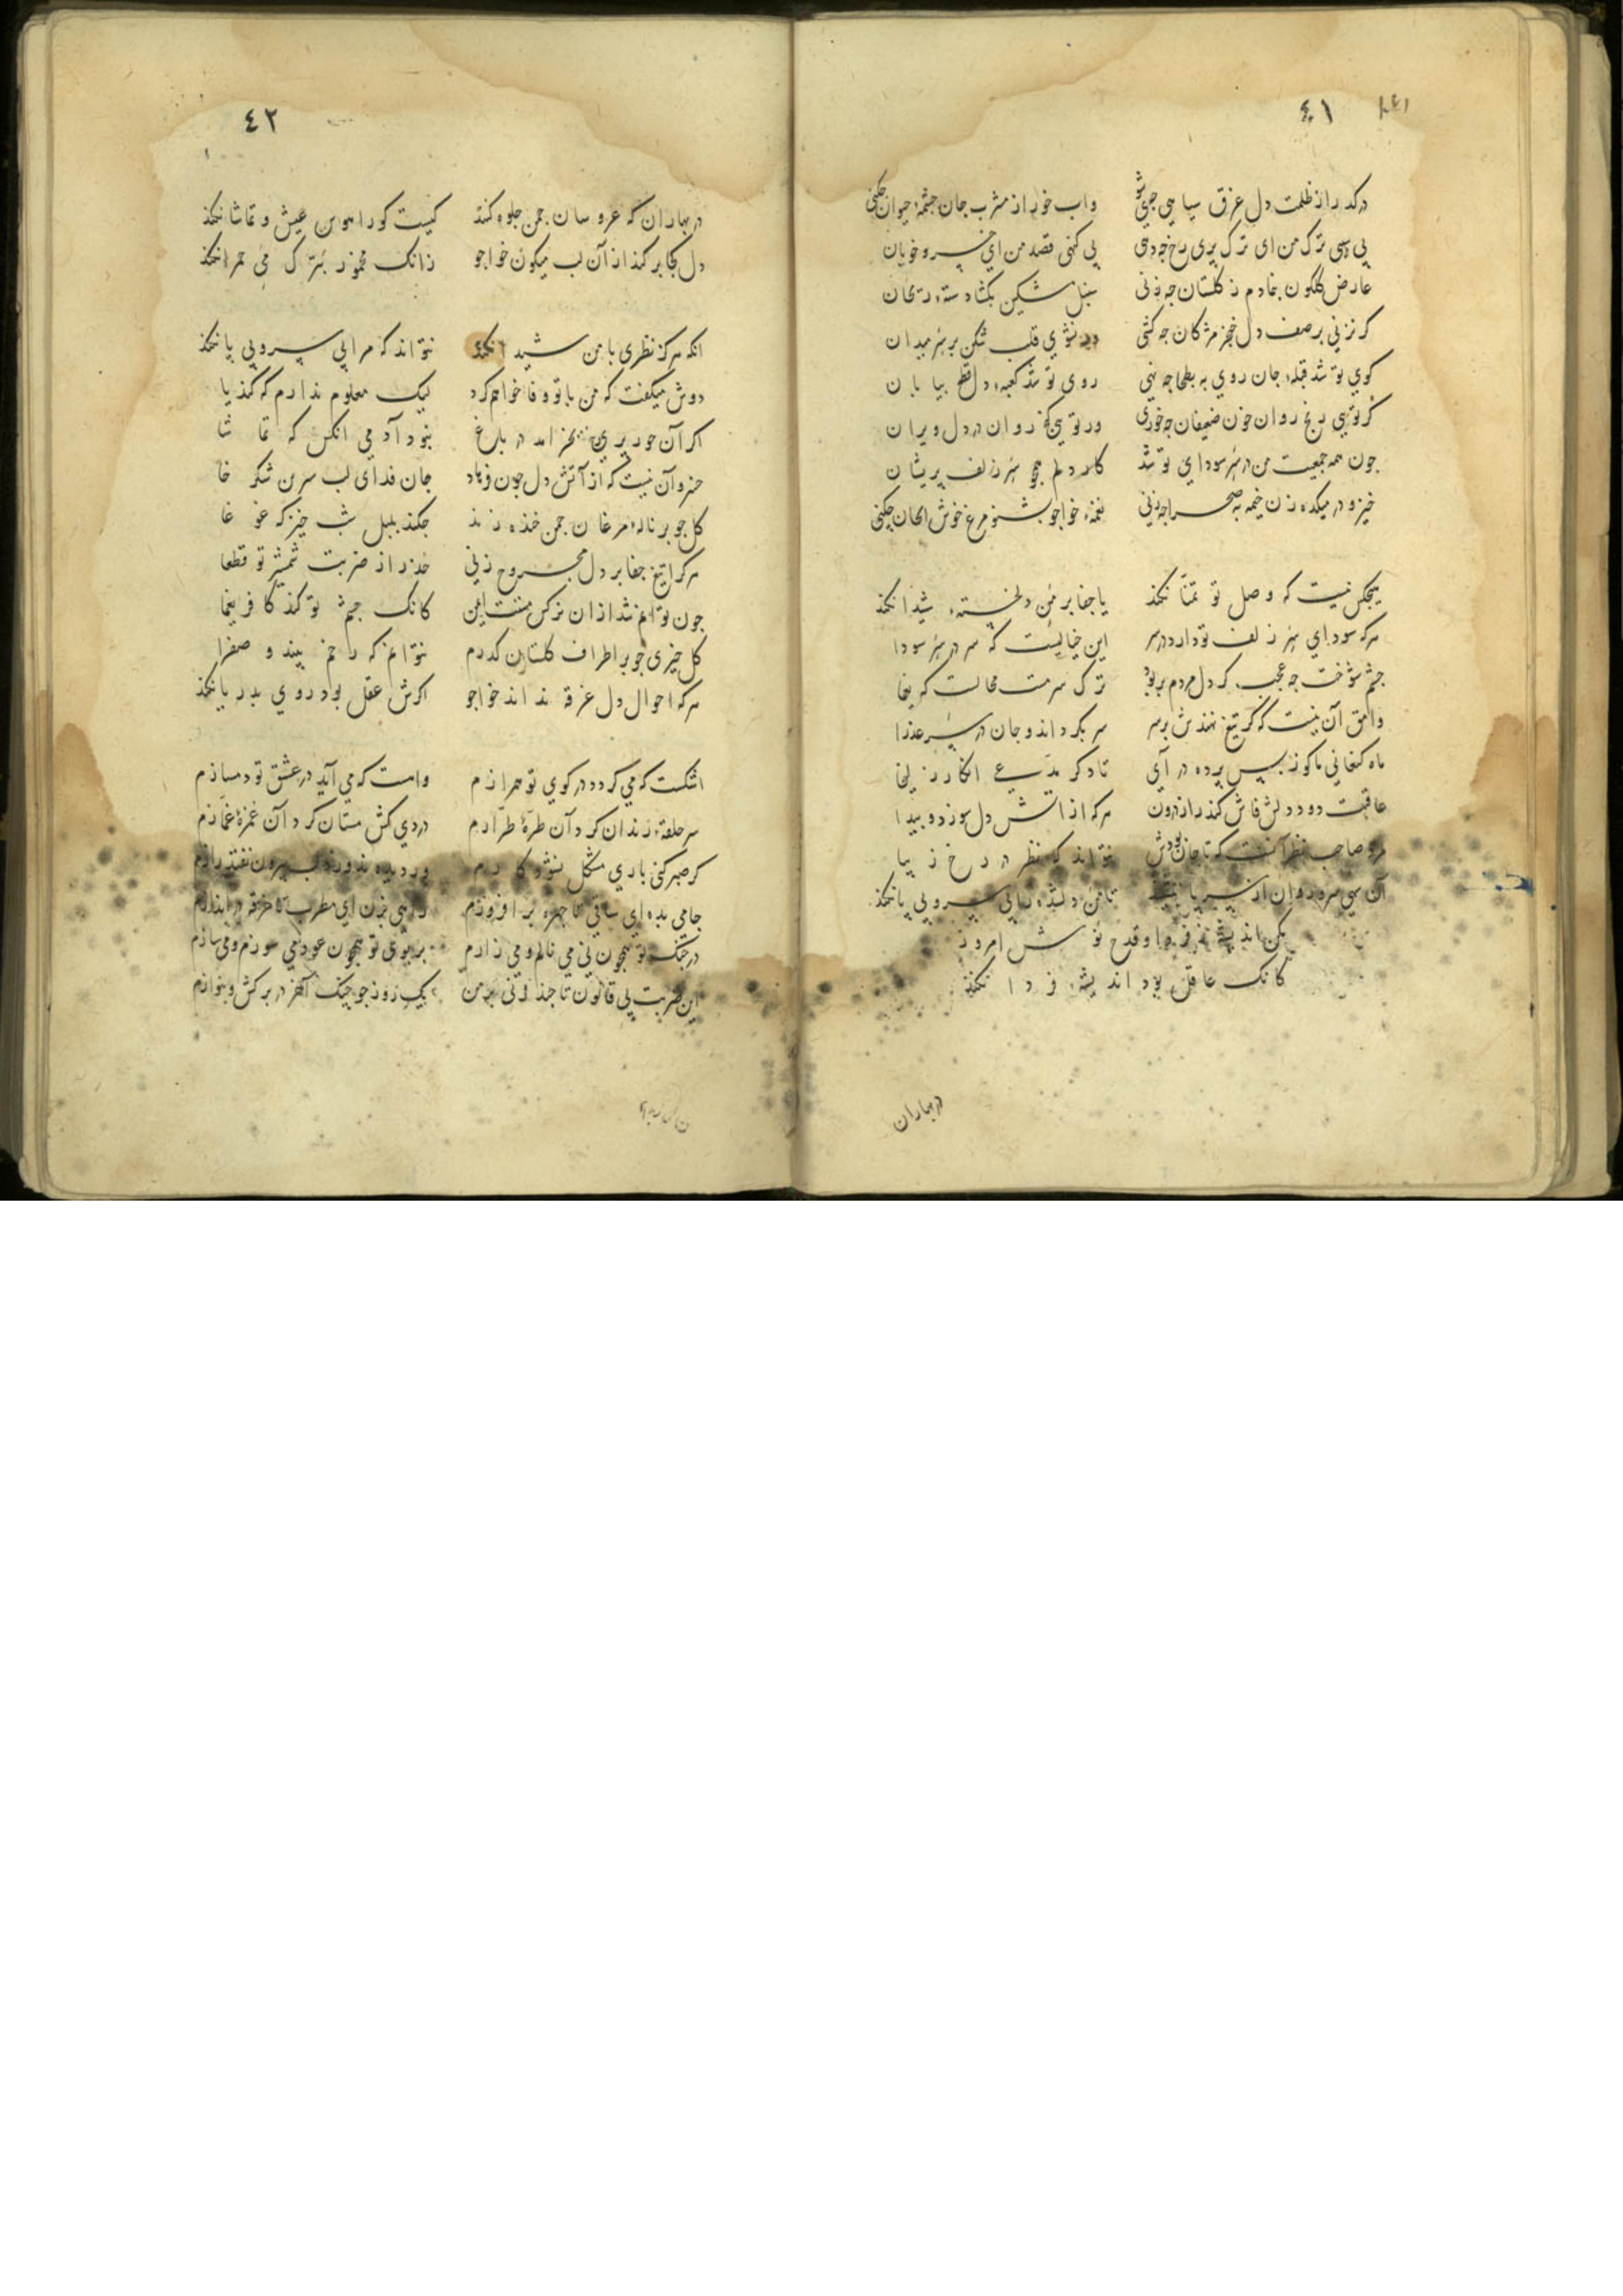 ٤١
در کدر از ظلمت دل غرق سیاهی جی شو واب خور از مشرب جان چشمهٔ حیوان جکنی
پی دهی ترک من ای ترک پری رخ جه دهی پی کنی قصد من ای خسرو خوبان
عارض کلکون بنما دم ز کلستان جه زنی سنبل مشکین بکشا دستهٔ ریحان
کر نزنی بر صف دل خنجر مژکان جه کشی ور نشوی قلب شکن بر سر میدان
کوی تو شد قبلهٔ جان روی به بطحا جه نهی روی تو شد کعبهٔ دل قطع بیابان
کر تویی رنج روان خون ضعیفان جه خوری ور تویی روان در دل ویران
جون همه جمعیت من در سر سودای تو شد کار دلم همجو سر زلف پریشان
خیز و در میکده زن خیمه به صحرا جه زنی نغمهٔ خواجو بشنو مرغ خوش الحان جکنی
هیجکس نیست که وصل تو تمنّا نکند یا جفا بر من دلخستهٔ شیدا نکند
هرکه سودای سر زلف تو دارد در سر این خیالیست که سر در سر سودا
جشم شوخت جه عجب کر دل مردم بربود ترک سرمست محالست که یغما
وامق آن نیست که کر تیغ نهندش بر سر سر بکرداند و جان در سر عذرا
ماه کنعانی ما کو ز پس پرده در آی تا دکر مدّعی انکار زلیخا
عاقبت دود دلش فاش کند راز درون هرکه از اتش دل سوزد و پیدا
مرد صاحب نظر آنست که تا جان بودش نتواند که نظر در رخ زیبا
آن سهی سرو روان از سر پا ننشیند تا من دلشده را بی سر و بی پا نکند
مکن اندیشهٔ فردا و قدح نوش امروز
کانک عاقل بود اندیشهٔ فردا نکند
در بهاران
٤٢
در بهاران که عروسان جمن جلوه کنند کیست کو را هوس عیش و تماشا نکند
دل کجا بر کند از آن لب میکون خواجو زانک مخمور بتر ک می حمرا نکند
انکه هرکز نظری با من شیدا نکند نتواند که مرا بی سر و بی پا نکند
دوش میکفت که من با تو وفا خواهم کرد لیک معلوم ندارم که کند یا
اکر آن حور پری بخرامد در باغ نبود آدمی انکس که تماشا
خسرو آن نیست که از آتش دل جون فرهاد جان فدای لب شیرین شکر خا
کل جو بر ناله مرغان جمن خنده زند جکند بلبل شب خیز که غوغا
هرکرا تیغ جفا بر دل مجروح زنی حذر از ضربت شمشیر تو قطعا
جون توانم شد از ان نرکس مست ایمن کانک جشم تو کند کافر یغما
کل خیری جو بر اطراف کلستان کذرم نتوانم که رخم بیند و صفرا
هرکه احوال دل غرقه نداند خواجو اکرش عقل بود روی بدریا نکند
اشکست که می کردد در کوی تو همرازم وآهست که می آید در عشق تو دمسازم
سر حلقهٔ رندان کرد آن طرّهٔ طرّارم دردی کش مستان کرد آن غمزهٔ غمّازم
کر صبر کنی باری مشکل نشود کارم ور دیده ندوزد لب بیرون نفتد رازم
جامی بده ای ساقی تا جهره بر افروزم راهی بزن ای مطرب تا خرقه در اندازم
در جنک تو همجون نی می نالم و می زارم بر بوی تو همجون عود می سوزم و می سازم
این ضربت بی قانون تا جند زنی بر من یکب روز جو جنک آخر در بر کش و بنوازم